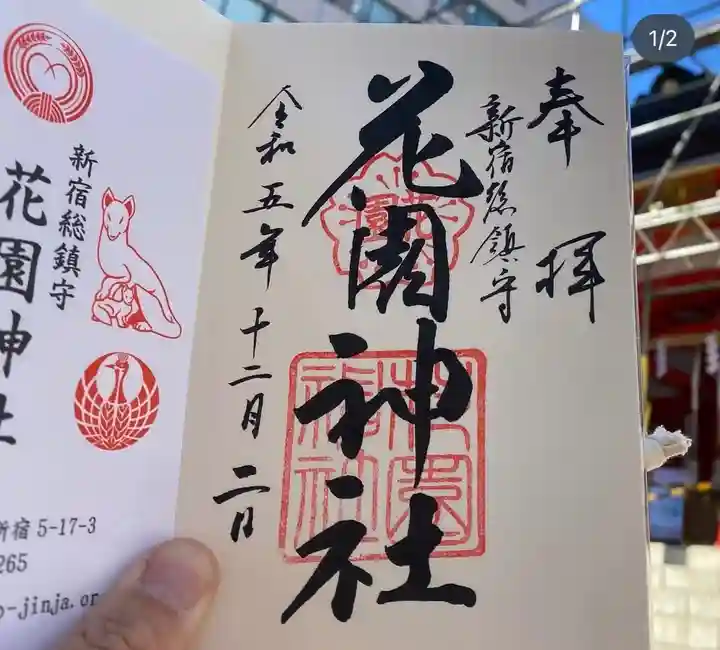 1/2
奉拝
新宿総鎮守
花園神社
令和五年十二月二日
花園
花園神社
新宿総鎮守
花園神社
新宿 5-17-3
265
o-jinja.or